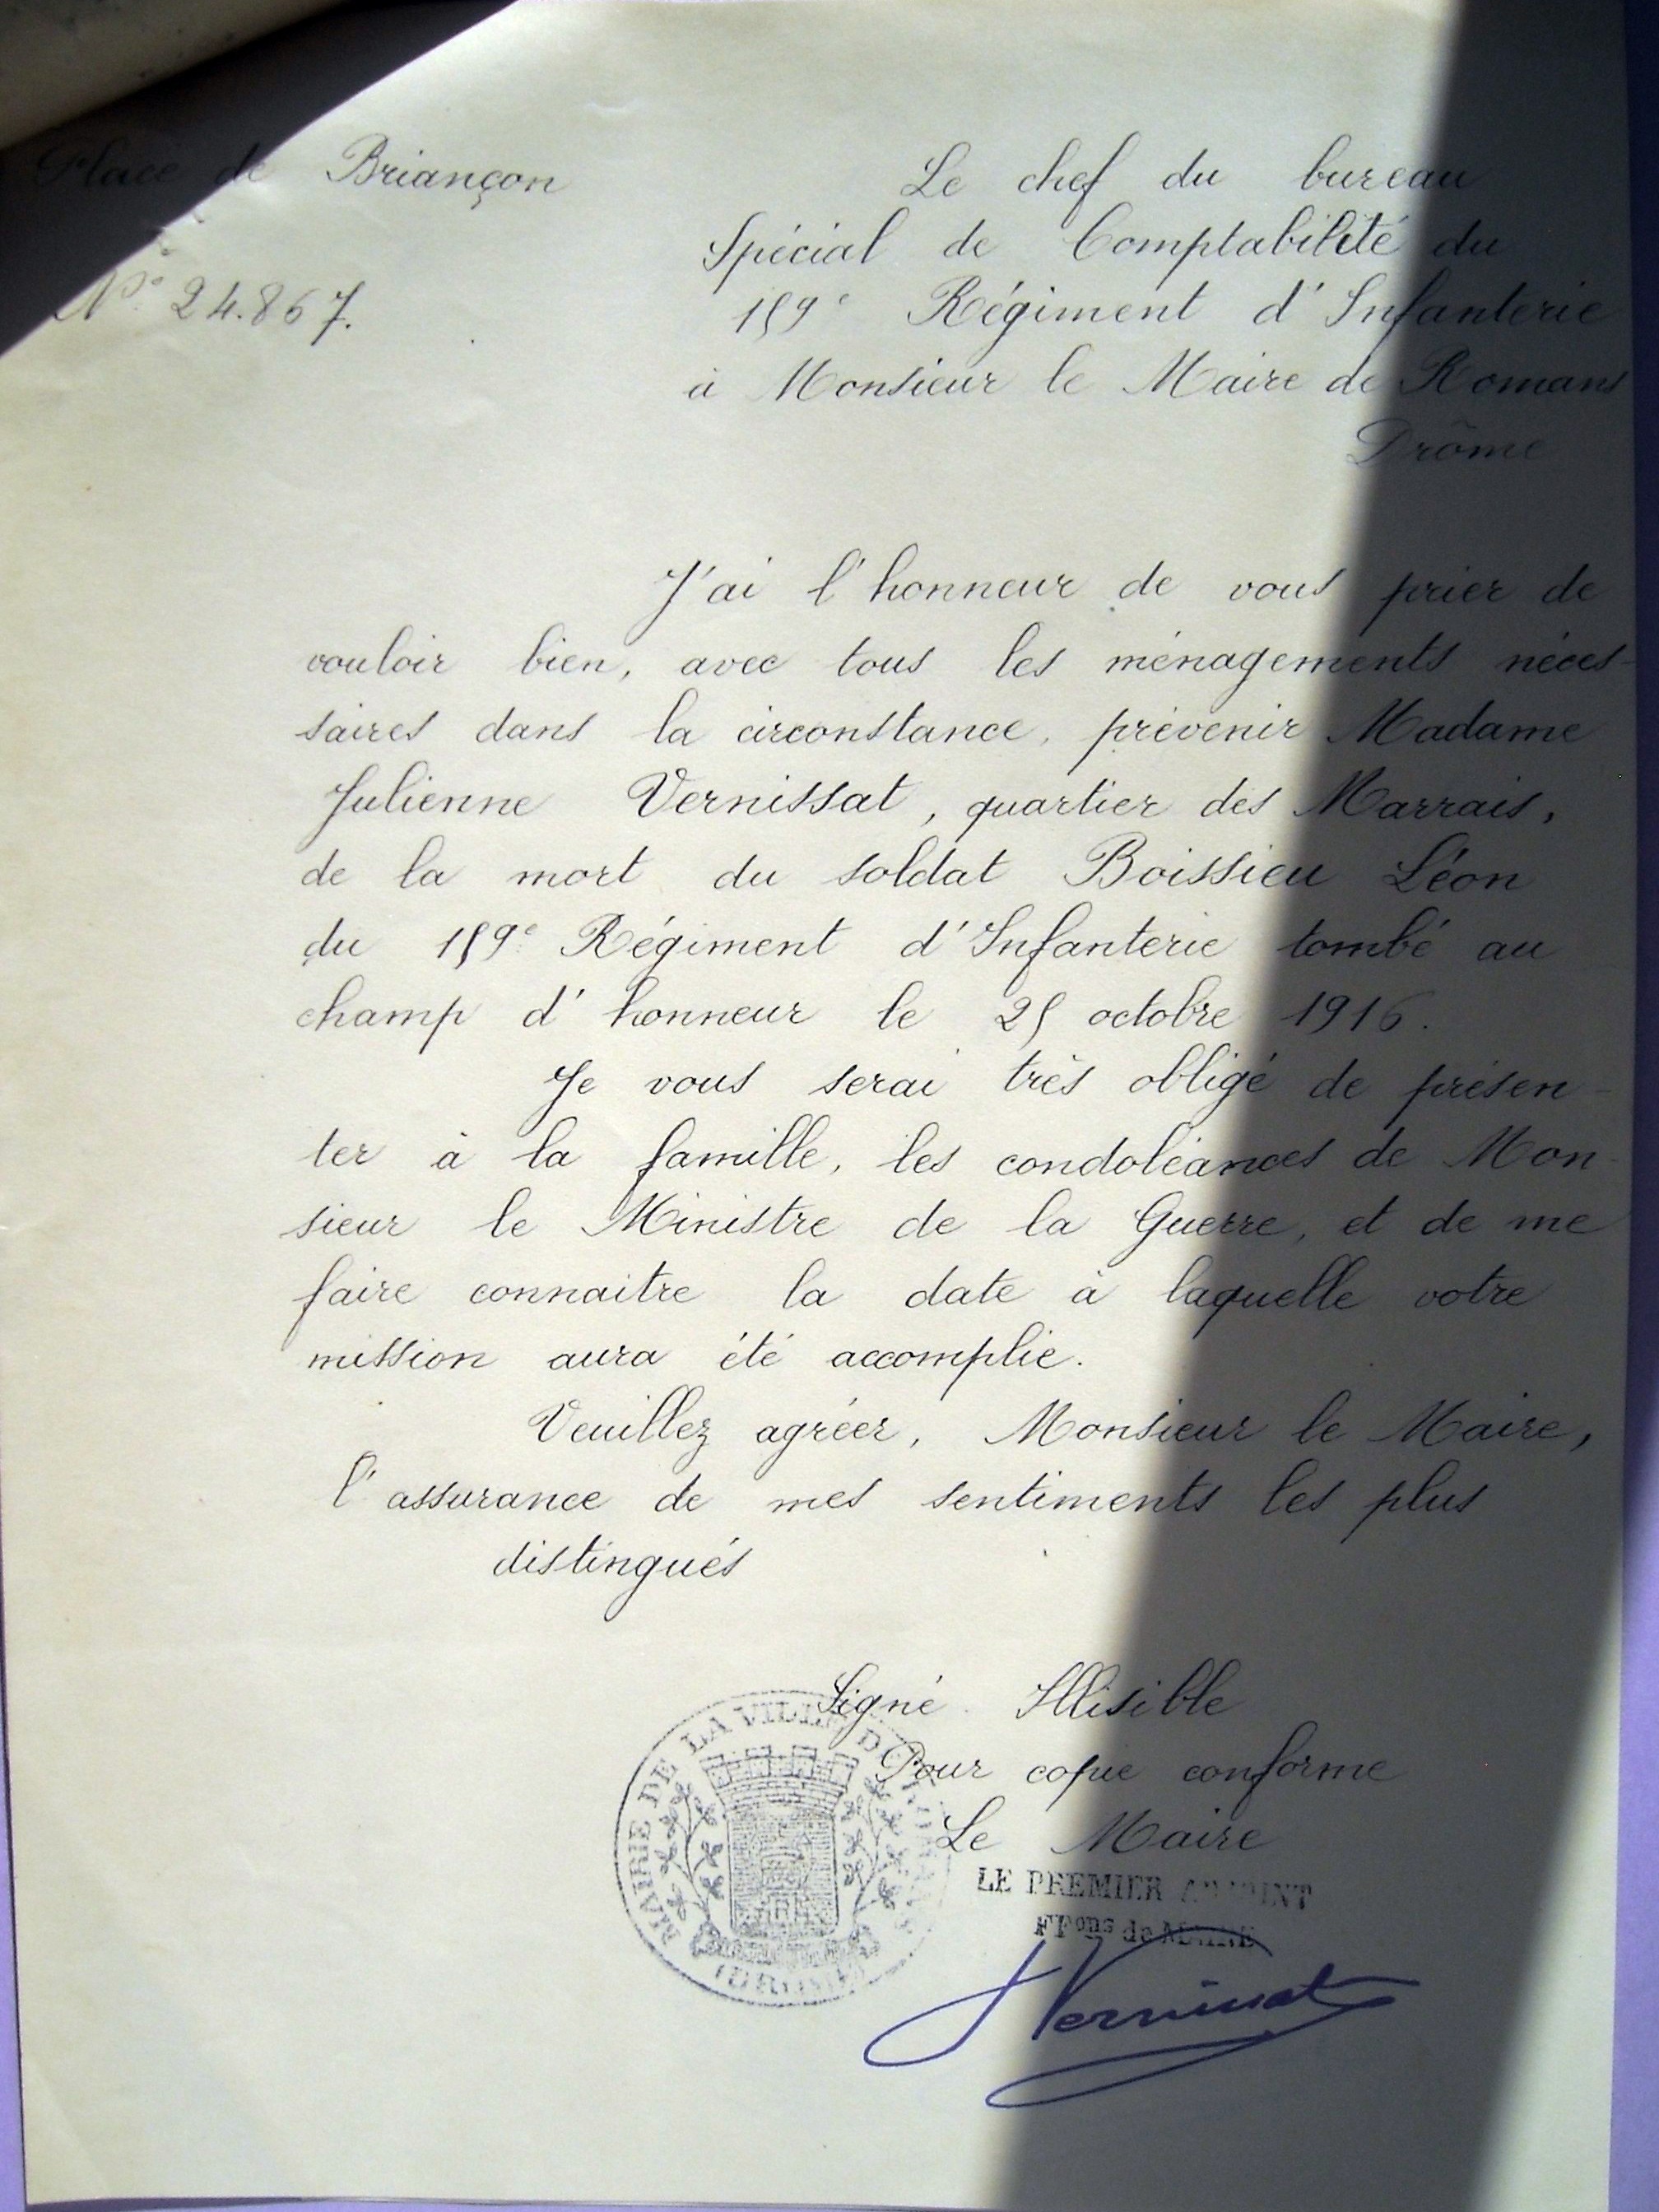 Place de Briançon
N° 24.867.
Le chef du bureau
Spécial de Comptabilité du
159e Régiment d'Infanterie
à Monsieur le Maire de Romans
Drôme
J'ai l'honneur de vous prier de
vouloir bien, avec tous les ménagements néces-
saires dans la circonstance, prévenir Madame
Julienne Vernissat, quartier des Marrais,
de la mort du soldat Boissieu Léon
du 159e Régiment d'Infanterie tombé au
champ d'honneur le 25 octobre 1916.
Je vous serai très obligé de présen-
ter à la famille, les condoléances de Mon-
sieur le Ministre de la Guerre, et de me
faire connaitre la date à laquelle votre
mission aura été accomplie.
Veuillez agréer, Monsieur le Maire,
l'assurance de mes sentiments les plus
distingués
Signé Illisible
Pour copie conforme
Le Maire
LE PREMIER ADJOINT
FFons de MAIRE
MAIRIE DE LA VILLE DE ROMANS
(DROME)